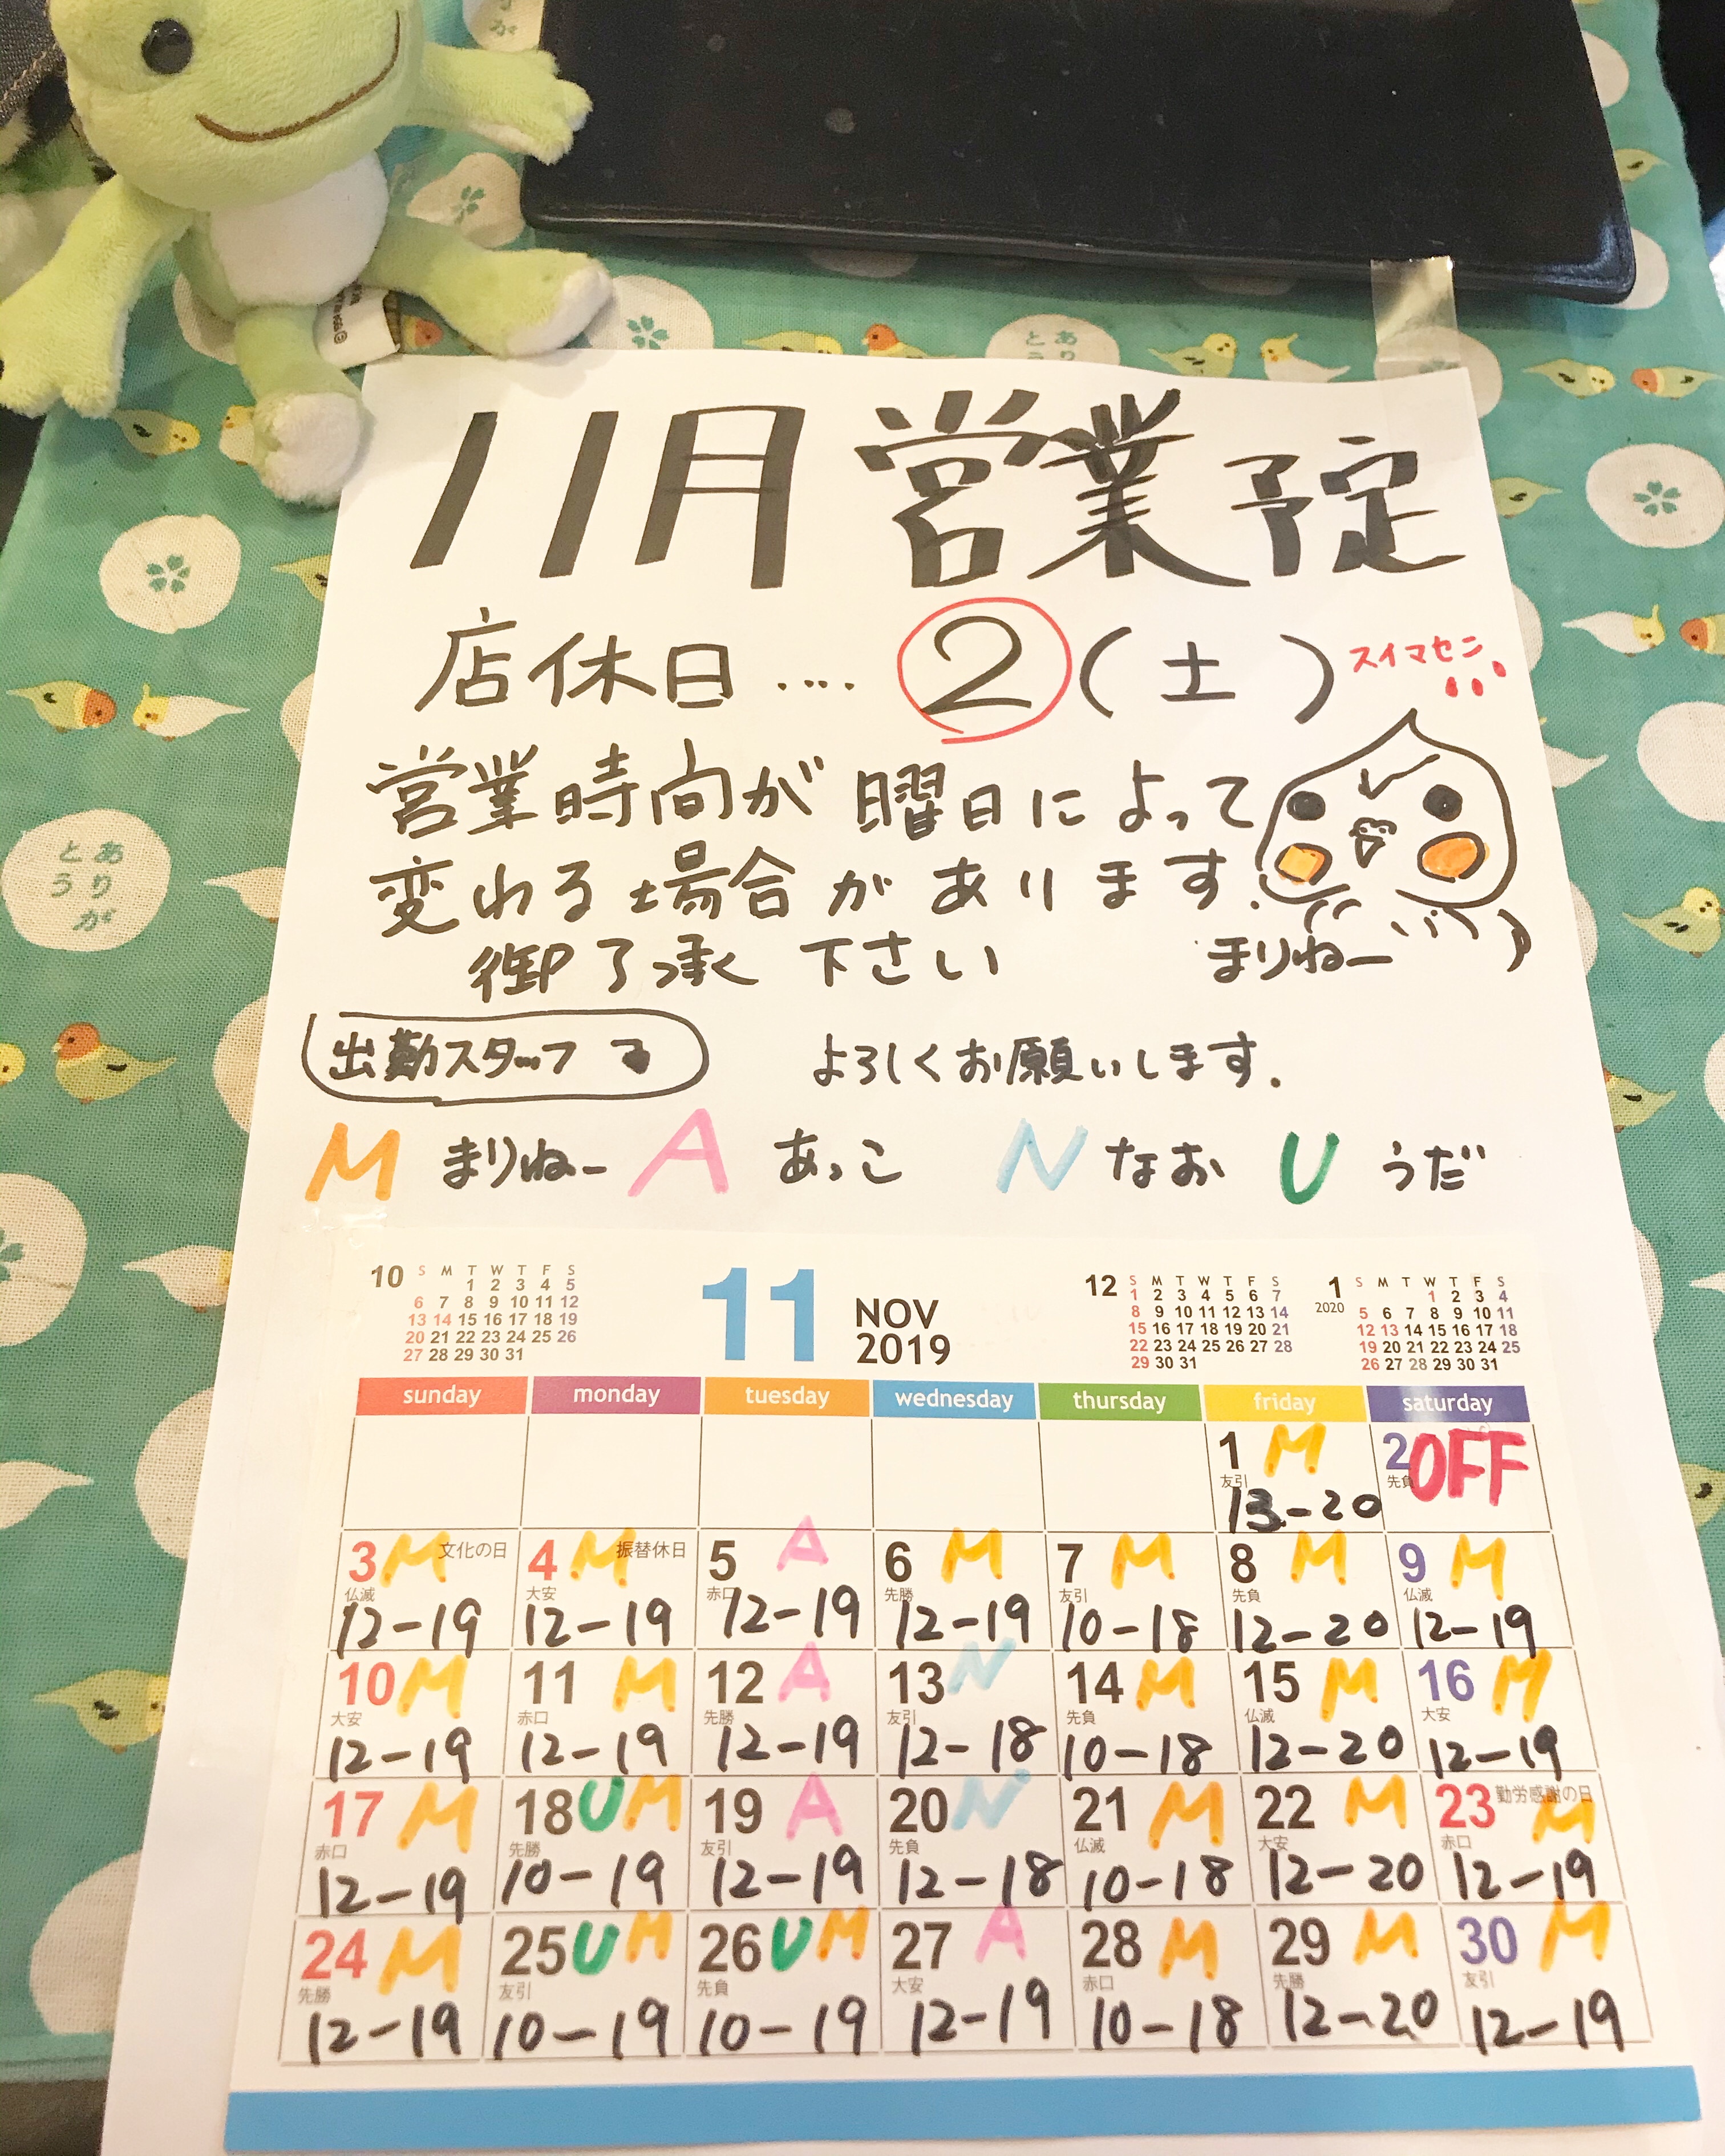 11月 営業予定
店休日 .... 2 (土) スイマセン
営業時間が 曜日によって
変わる場合があります.
御了承下さい まりねー
出勤スタッフ よろしくお願いします.
M まりねー A あっこ N なお U うだ
10 11 NOV 2019 12 1 2020
S M T W T F S
1 2 3 4 5
6 7 8 9 10 11 12
13 14 15 16 17 18 19
20 21 22 23 24 25 26
27 28 29 30 31
S M T W T F S
1 2 3 4 5 6 7
8 9 10 11 12 13 14
15 16 17 18 19 20 21
22 23 24 25 26 27 28
29 30 31
S M T W T F S
1 2 3 4
5 6 7 8 9 10 11
12 13 14 15 16 17 18
19 20 21 22 23 24 25
26 27 28 29 30 31
sunday monday tuesday wednesday thursday friday saturday
1 M 2 OFF
友引 先負
13-20
3 M 文化の日 4 M 振替休日 5 A 6 M 7 M 8 M 9 M
仏滅 大安 赤口 先勝 友引 先負 仏滅
12-19 12-19 12-19 12-19 10-18 12-20 12-19
10 M 11 M 12 A 13 N 14 M 15 M 16 M
大安 赤口 先勝 友引 先負 仏滅 大安
12-19 12-19 12-19 12-18 10-18 12-20 12-19
17 M 18 U M 19 A 20 N 21 M 22 M 23 勤労感謝の日 M
赤口 先勝 友引 先負 仏滅 大安 赤口
12-19 10-19 12-19 12-18 10-18 12-20 12-19
24 M 25 U M 26 U M 27 A 28 M 29 M 30 M
先勝 友引 先負 大安 赤口 先勝 友引
12-19 10-19 10-19 12-19 10-18 12-20 12-19
ありが
とう